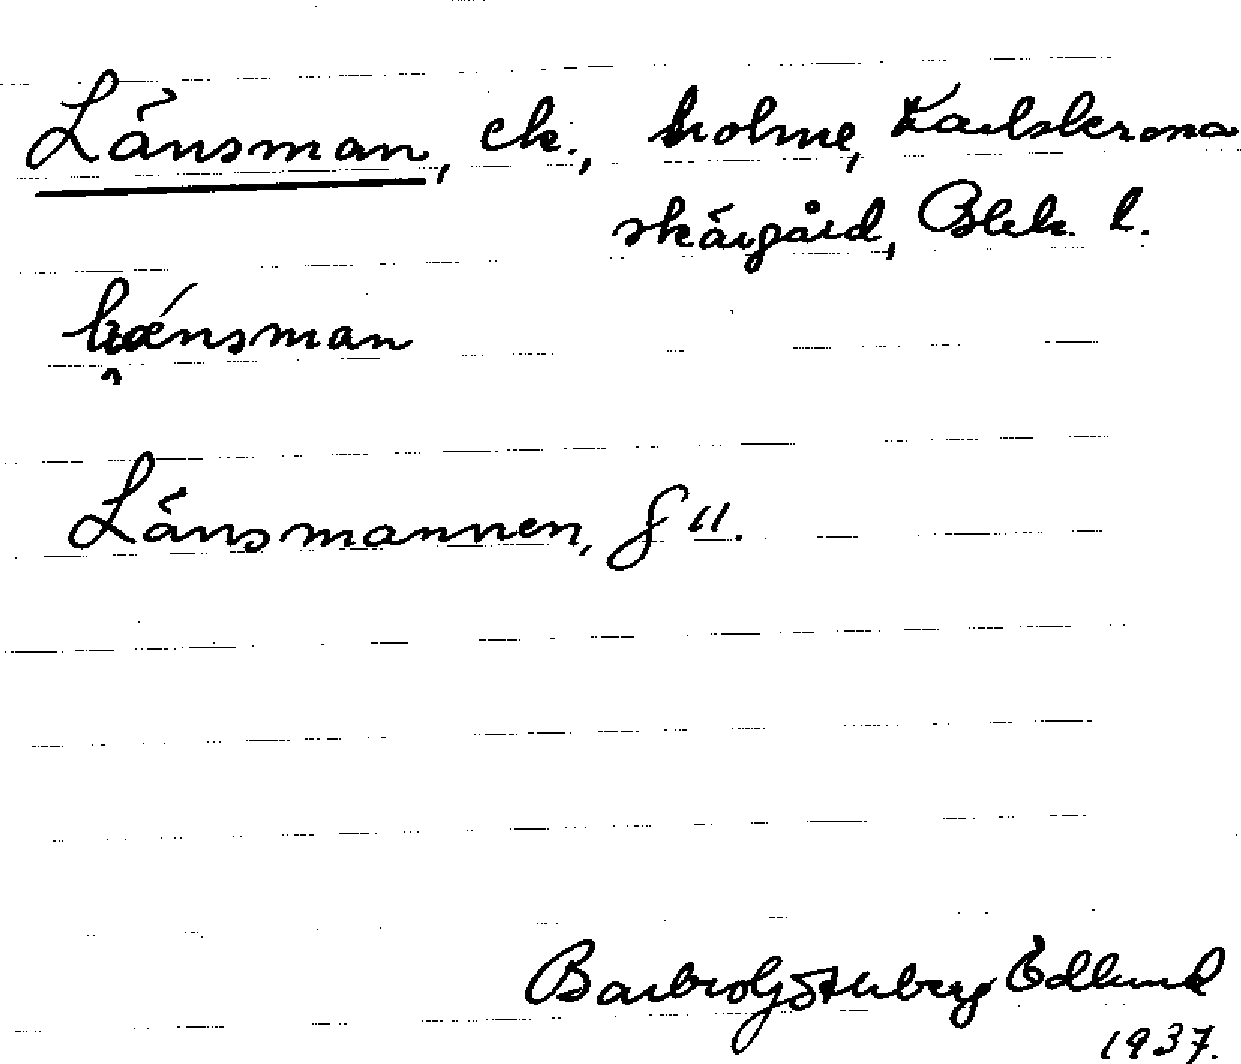 Länsman, ek., holme, Karlskrona
skärgård, Blek. l.
länsman
Länsmannen, G 11.
Barbro Götherberg Edlund
1937.